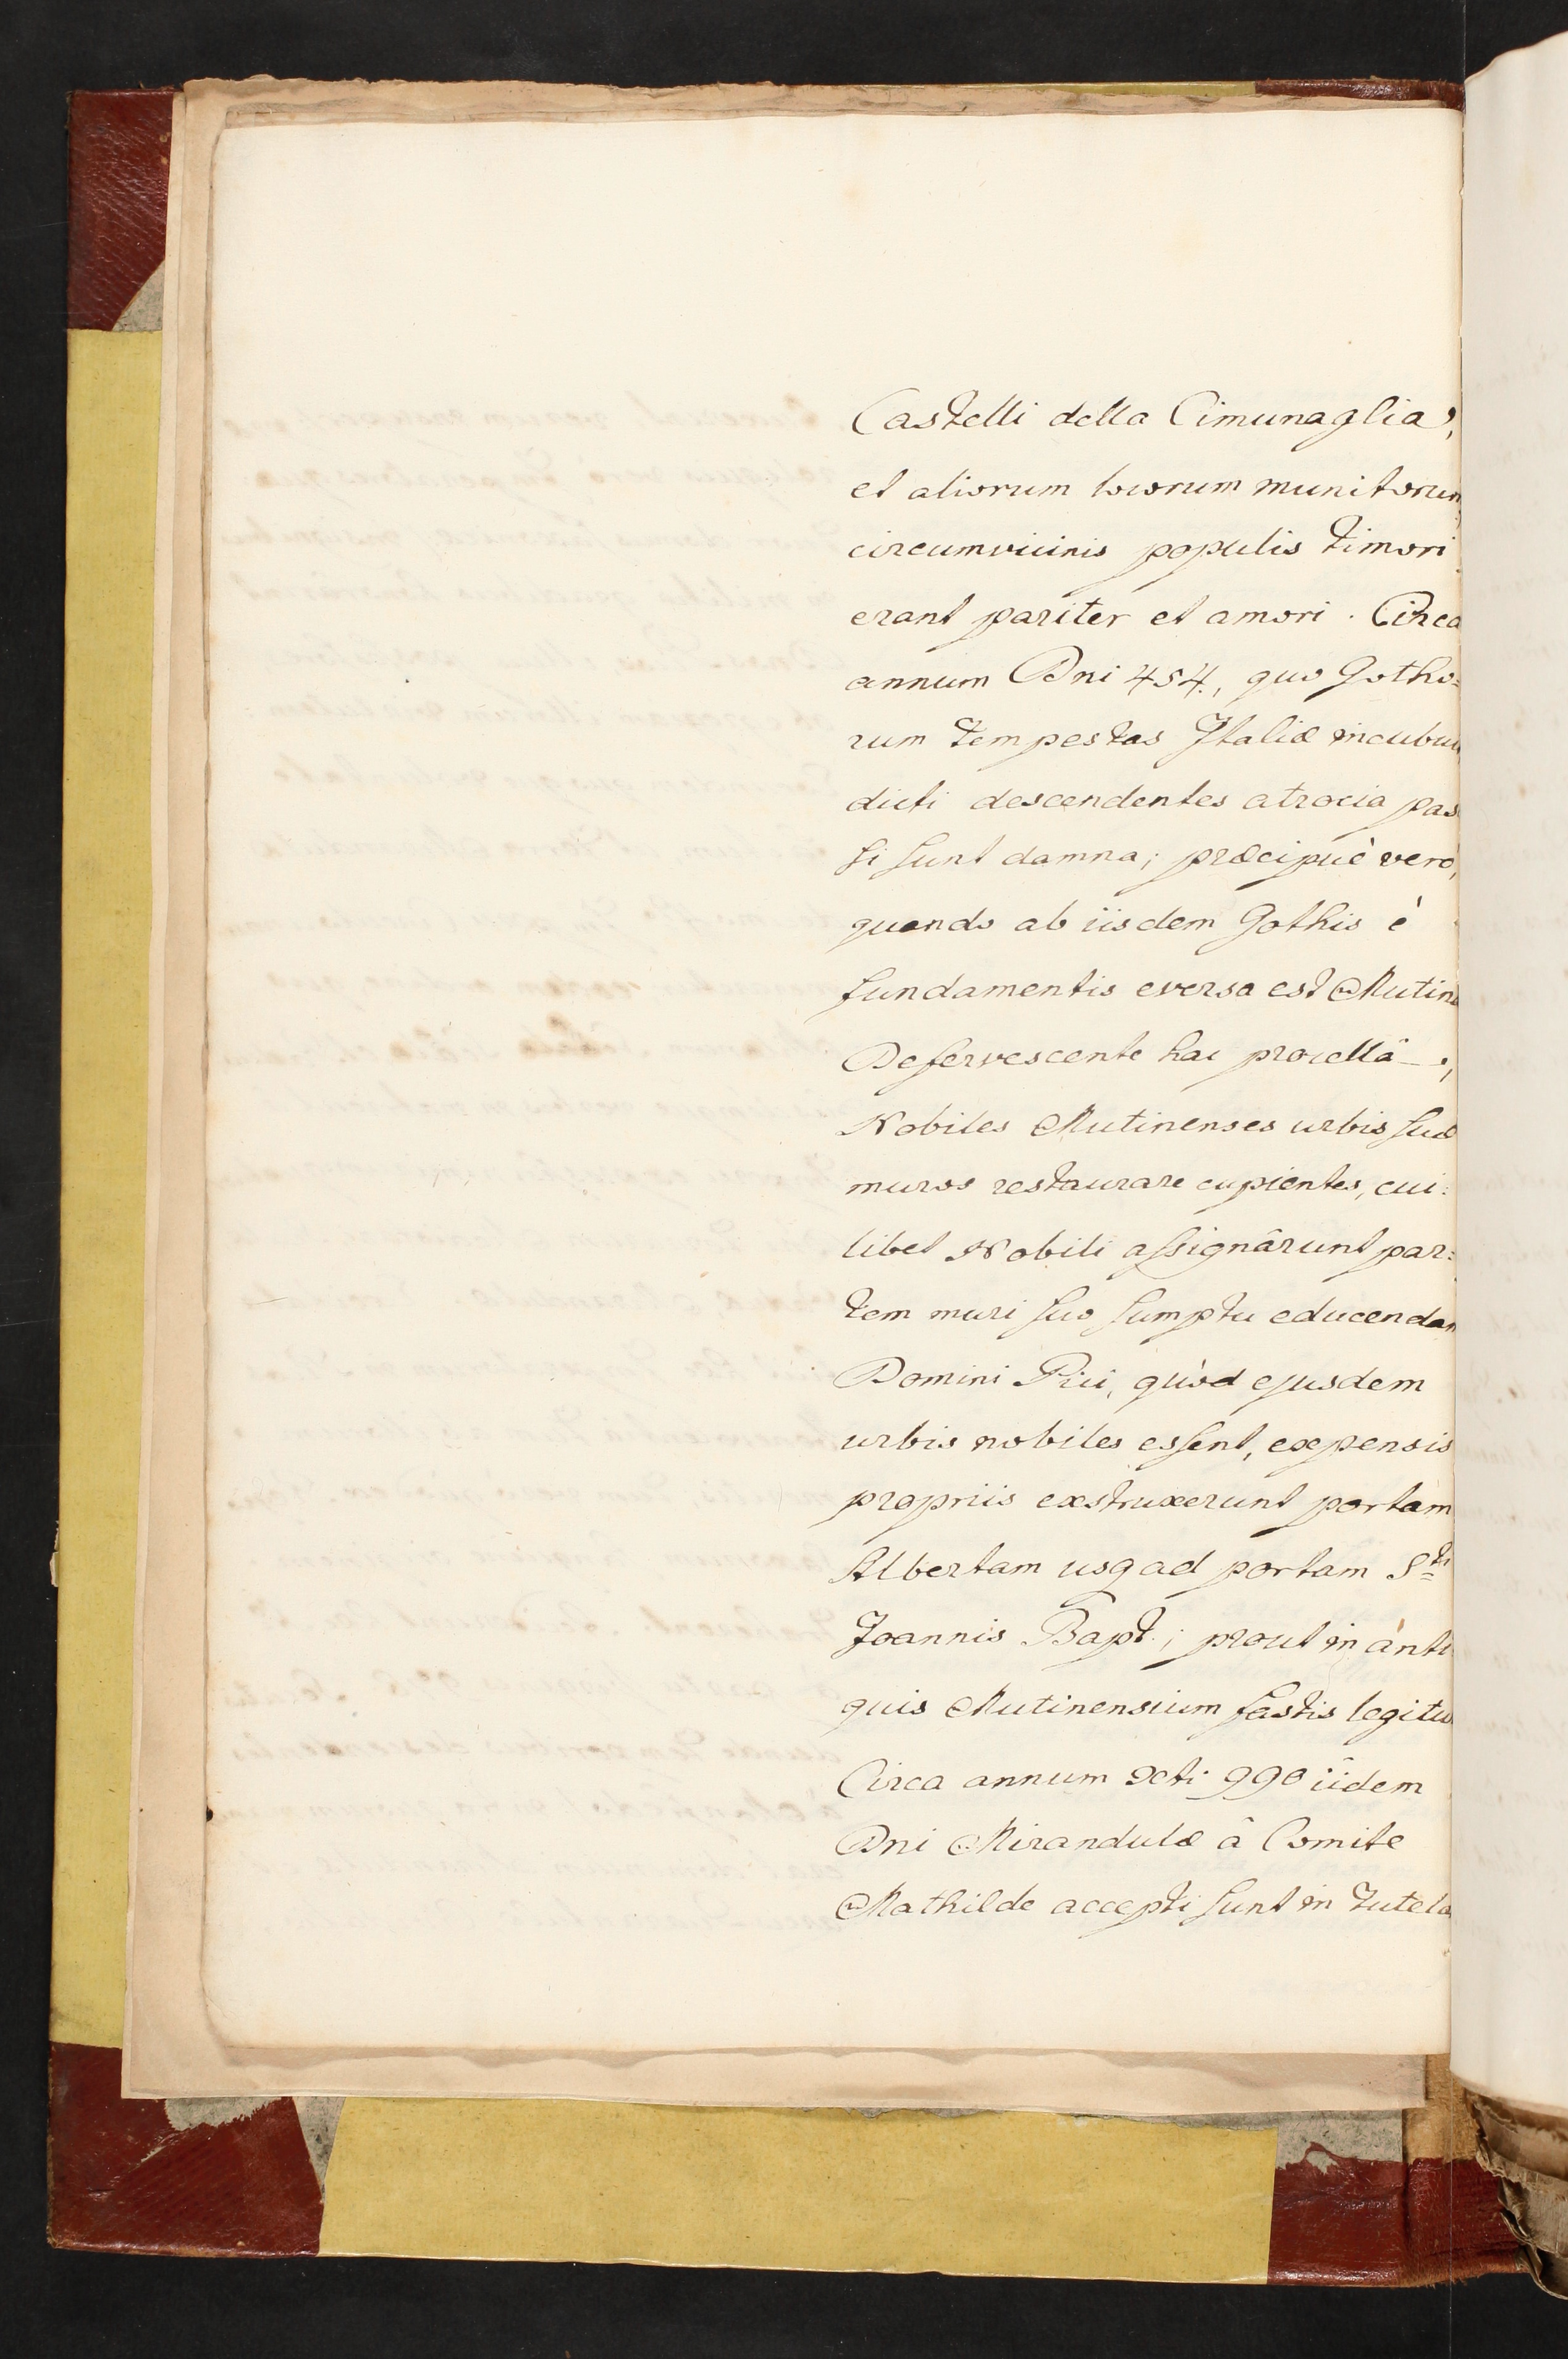 Castelli della Cimunaglia,
et aliorum locorum munitorum
circumvicinis populis timori
erant pariter et amori. Circa
annum Dni 454., quo Gotho=
rum tempestas Italiæ incubui
dicti descendentes atrocia pas
si sunt damna; præcipuè verò,
quando ab iisdem Gothis è
fundamentis eversa est Mutina
Defervescente hac procellâ,
Nobiles Mutinenses urbis suæ
muros restaurare cupientes, cui=
libet Nobili assignârunt par=
tem muri suo sumptu educendam
Domini Pici, quòd ejusdem
urbis nobiles essent, expensis
propriis exstruxerunt portam
Albertam usq ad portam S.ti
Joannis Bapt.; prout in anti
quis Mutinensium fastis legitur
Circa annum Xti 990 iidem
Dni Mirandulæ â Comite
Mathilde accepti sunt in tutela